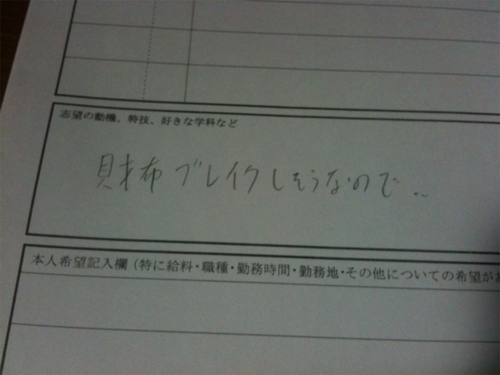 志望の動機、特技、好きな学科など
財布ブレイクしそうなので..
本人希望記入欄(特に給料・職種・勤務時間・勤務地・その他についての希望が